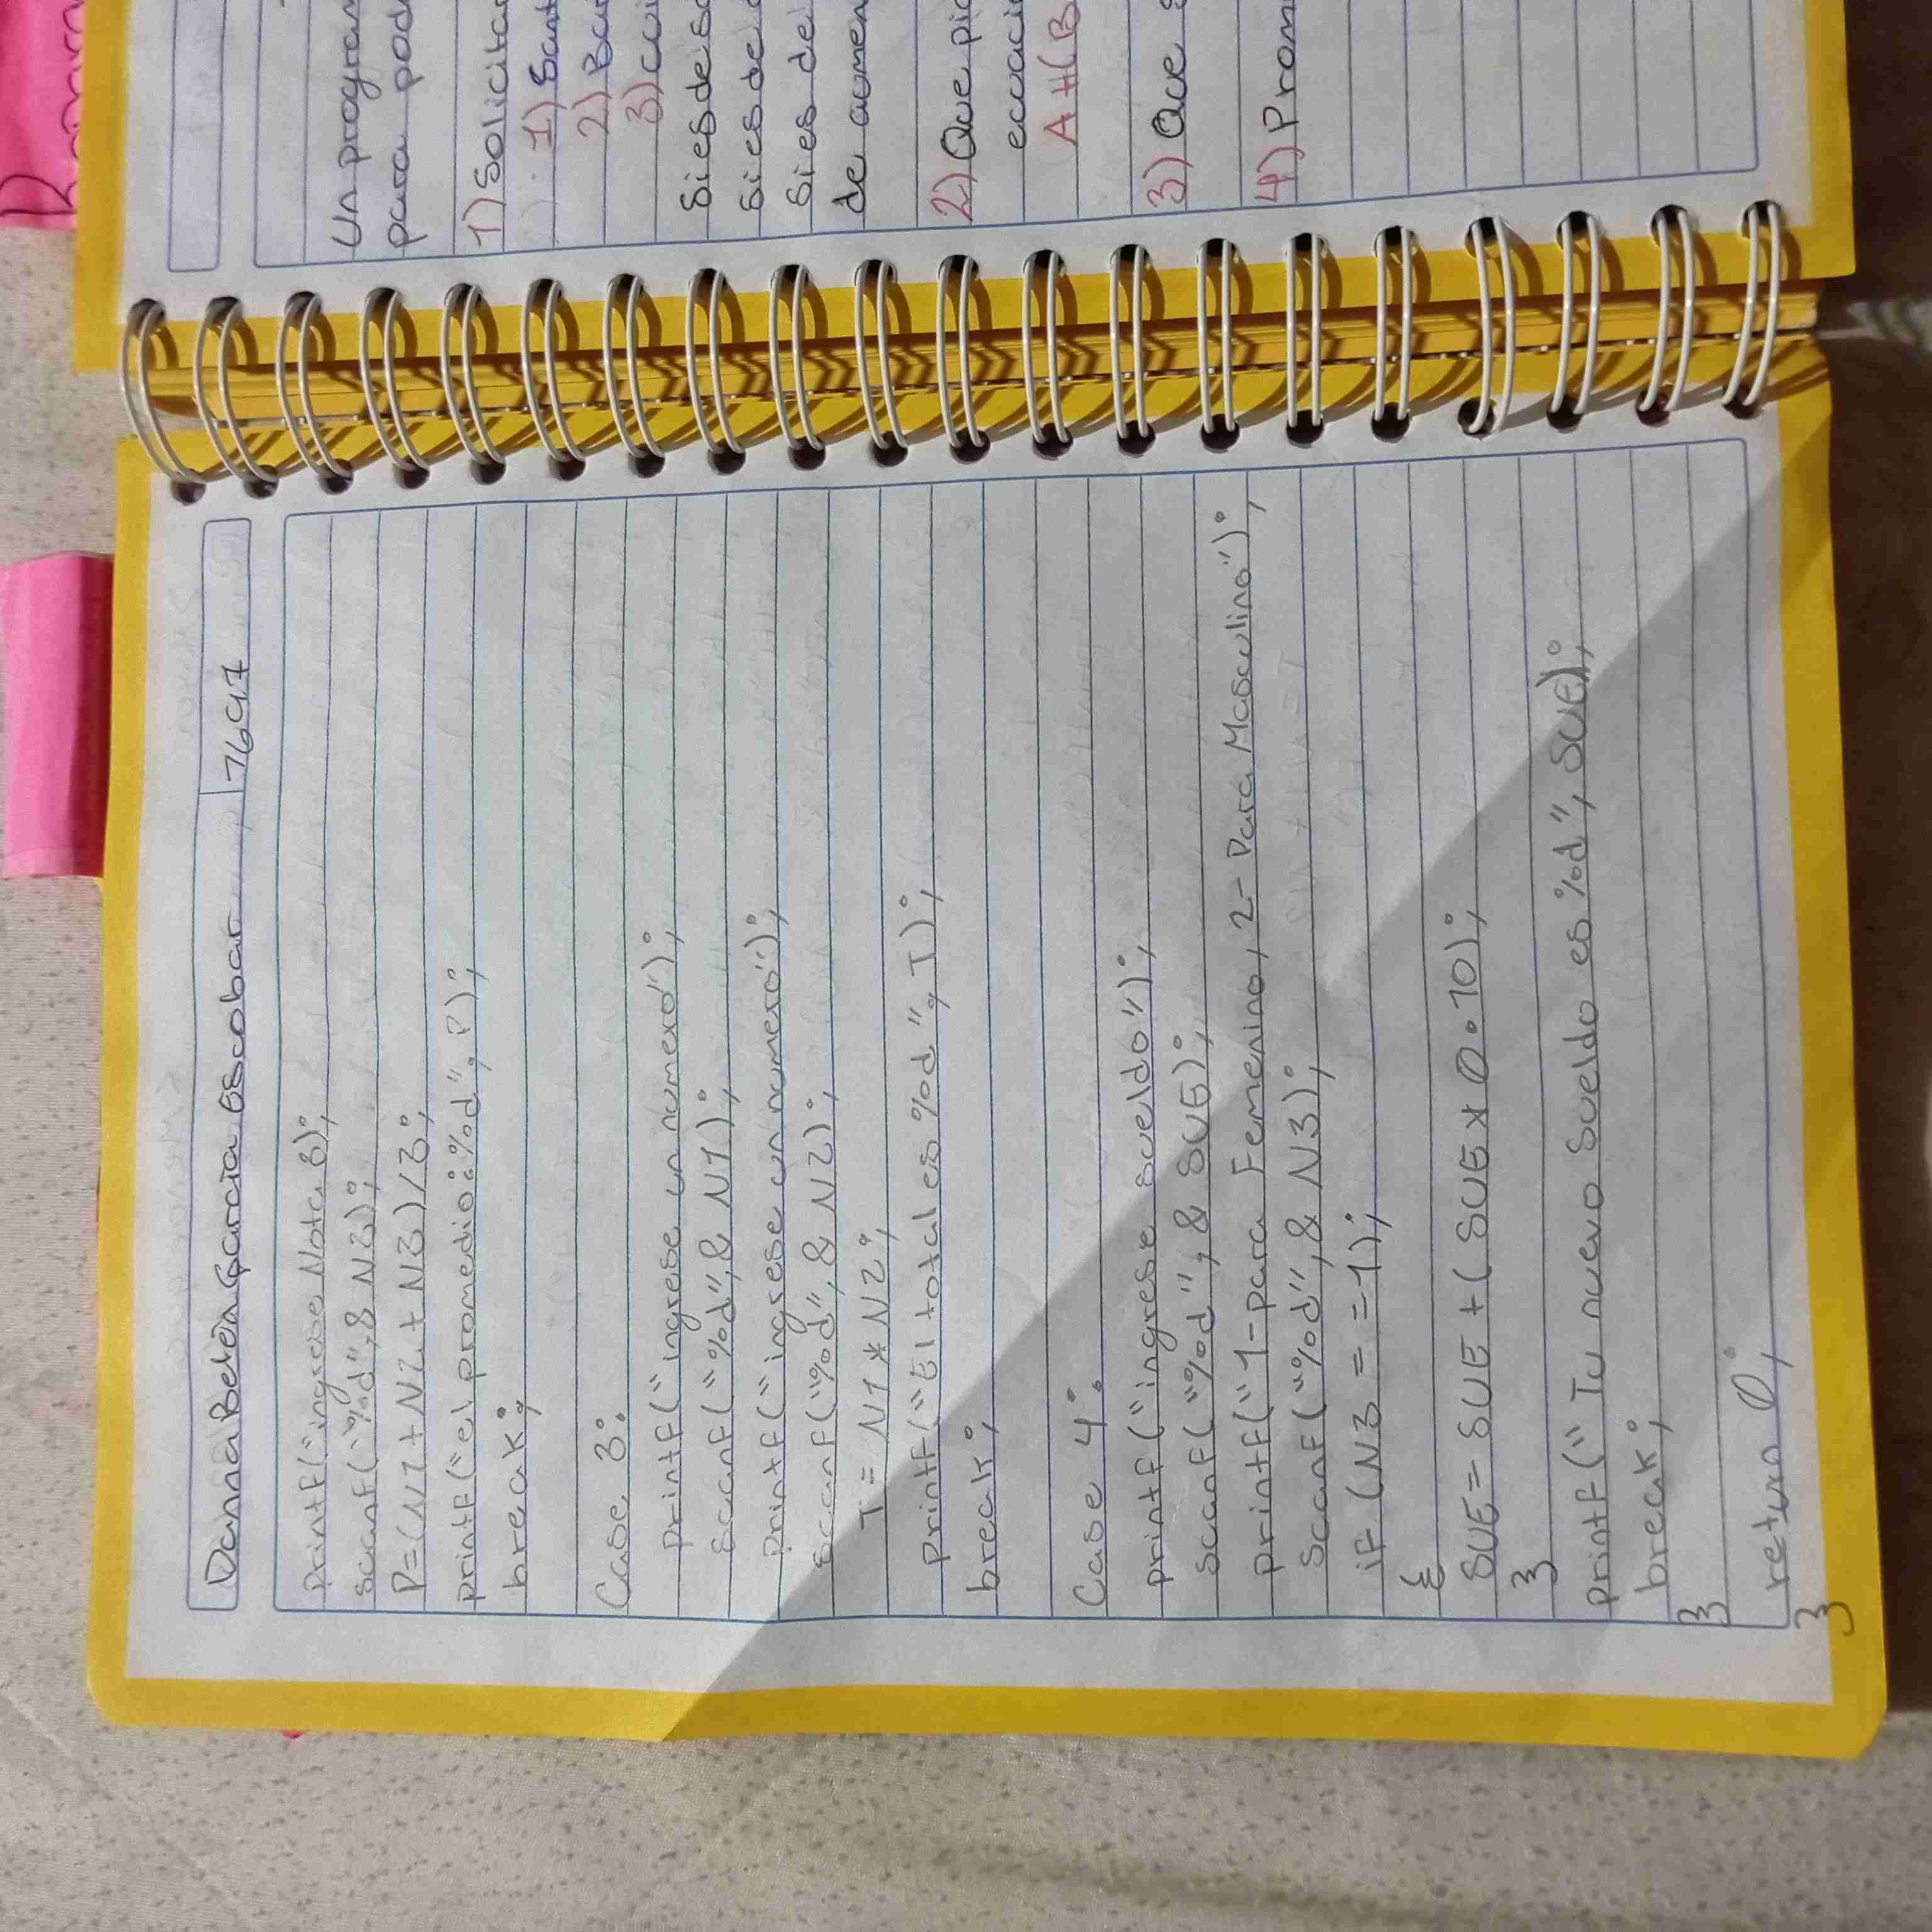 Danna Belén García Escobar 7697
printf("ingrese Nota 3);
scanf("%d",& N3);
P=(N1+N2+N3)/3;
printf("el promedio:%d", P);
break;
Case 3:
printf("ingrese un numero");
scanf("%d",& N1);
printf("ingrese un numero");
scanf("%d",& N2);
T= N1*N2;
printf("El total es %d", T);
break;
Case 4:
printf("ingrese sueldo");
scanf("%d",& SUE);
printf("1-para Femenino, 2-Para Masculino");
scanf("%d",& N3);
if (N3 = = 1);
{
SUE= SUE + (SUE * 0.10);
}
printf("Tu nuevo Sueldo es %d", SUE);
break;
}
return 0;
}
Un program
para pod
1) Solicita
1) Sant
2) Ba
3) Cui
Si es de s
Si es de
Si es de
de aumen
2) Que pi
ecuaci
A+(B
3) Que s
4) Prom